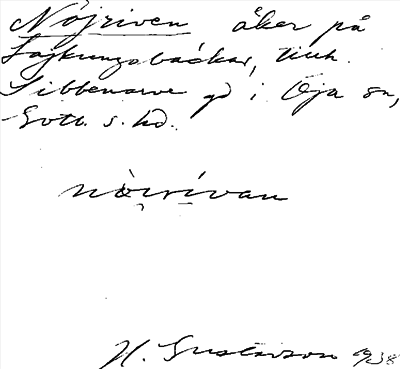 Nöjriven åker på
Lajkungsbackar, till
Sibbenarve gd i Öja sn,
Gotl. s. hd.
nòirívan
H. Gustavson 1938